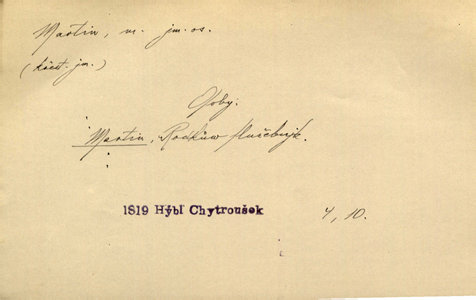 Martin, m. jm. os.
(křest. jm.)
Osoby:
Martin, Rockůw služebnjk.
1819 Hýbl Chytroušek 4, 10.